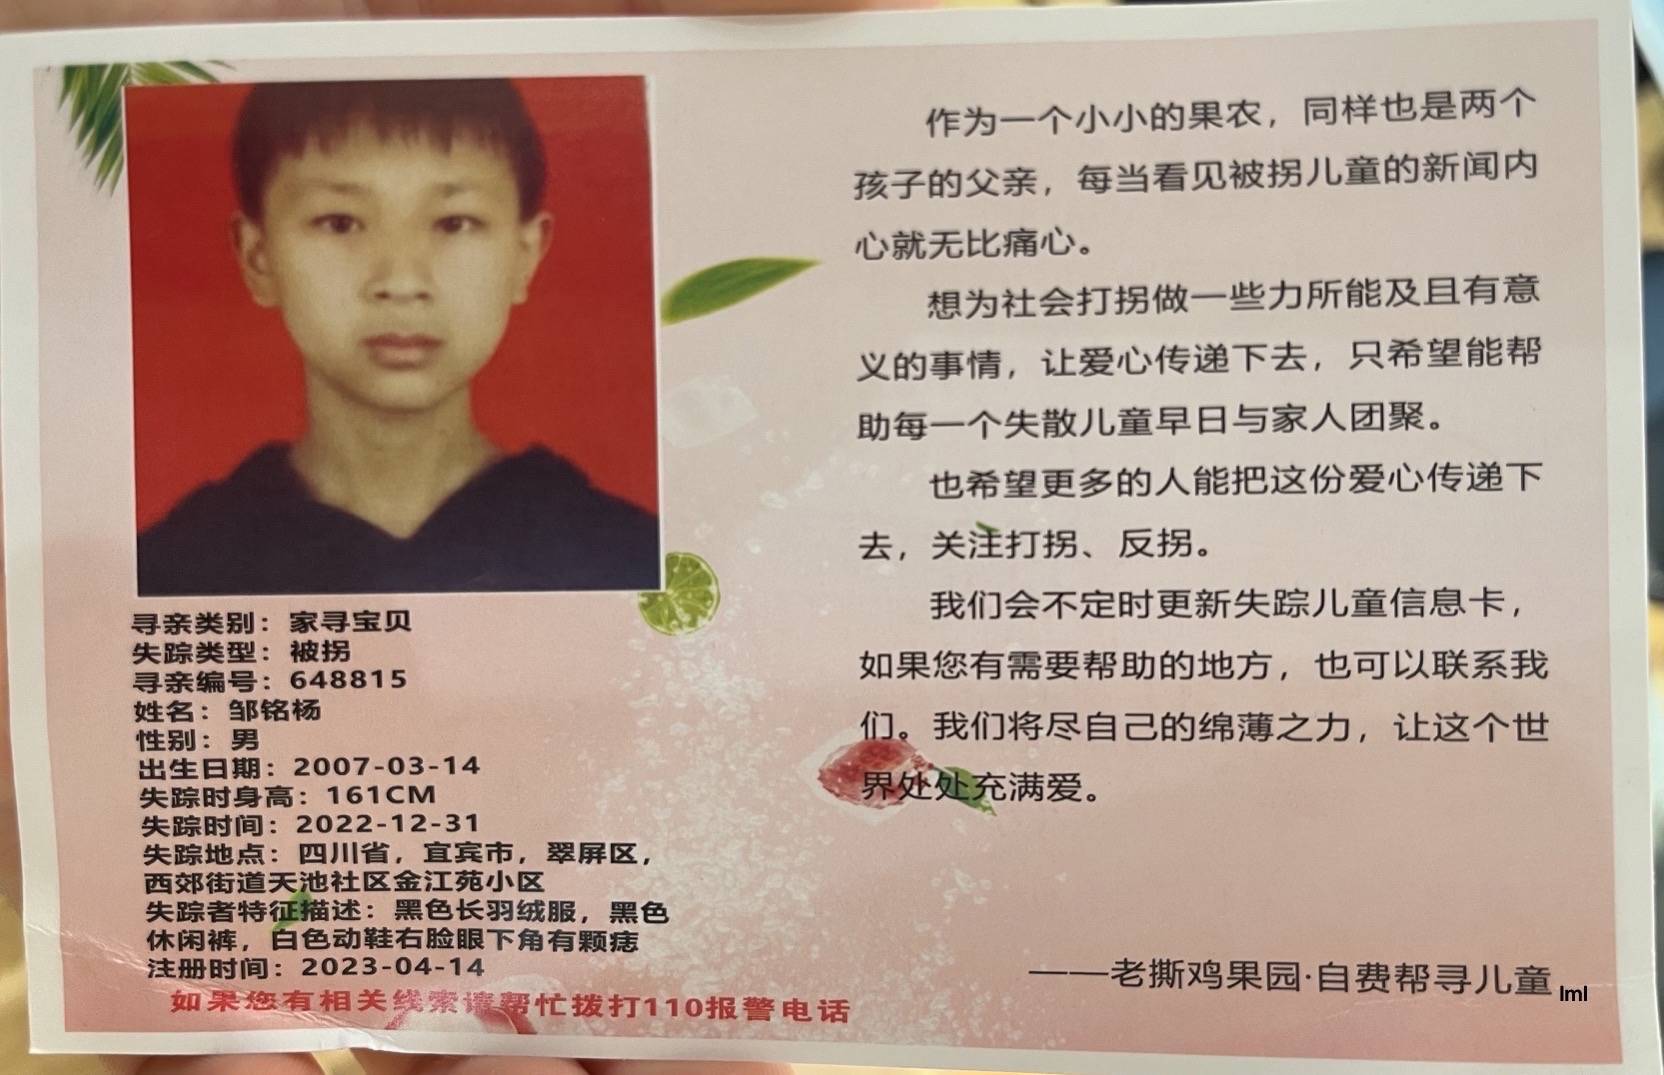 寻亲类别：家寻宝贝
失踪类型：被拐
寻亲编号：648815
姓名：邹铭杨
性别：男
出生日期：2007-03-14
失踪时身高：161CM
失踪时间：2022-12-31
失踪地点：四川省，宜宾市，翠屏区，
西郊街道天池社区金江苑小区
失踪者特征描述：黑色长羽绒服，黑色
休闲裤，白色动鞋右脸眼下角有颗痣
注册时间：2023-04-14
如果您有相关线索请帮忙拨打110报警电话
作为一个小小的果农，同样也是两个
孩子的父亲，每当看见被拐儿童的新闻内
心就无比痛心。
想为社会打拐做一些力所能及且有意
义的事情，让爱心传递下去，只希望能帮
助每一个失散儿童早日与家人团聚。
也希望更多的人能把这份爱心传递下
去，关注打拐、反拐。
我们会不定时更新失踪儿童信息卡，
如果您有需要帮助的地方，也可以联系我
们。我们将尽自己的绵薄之力，让这个世
界处处充满爱。
——老撕鸡果园·自费帮寻儿童
lml